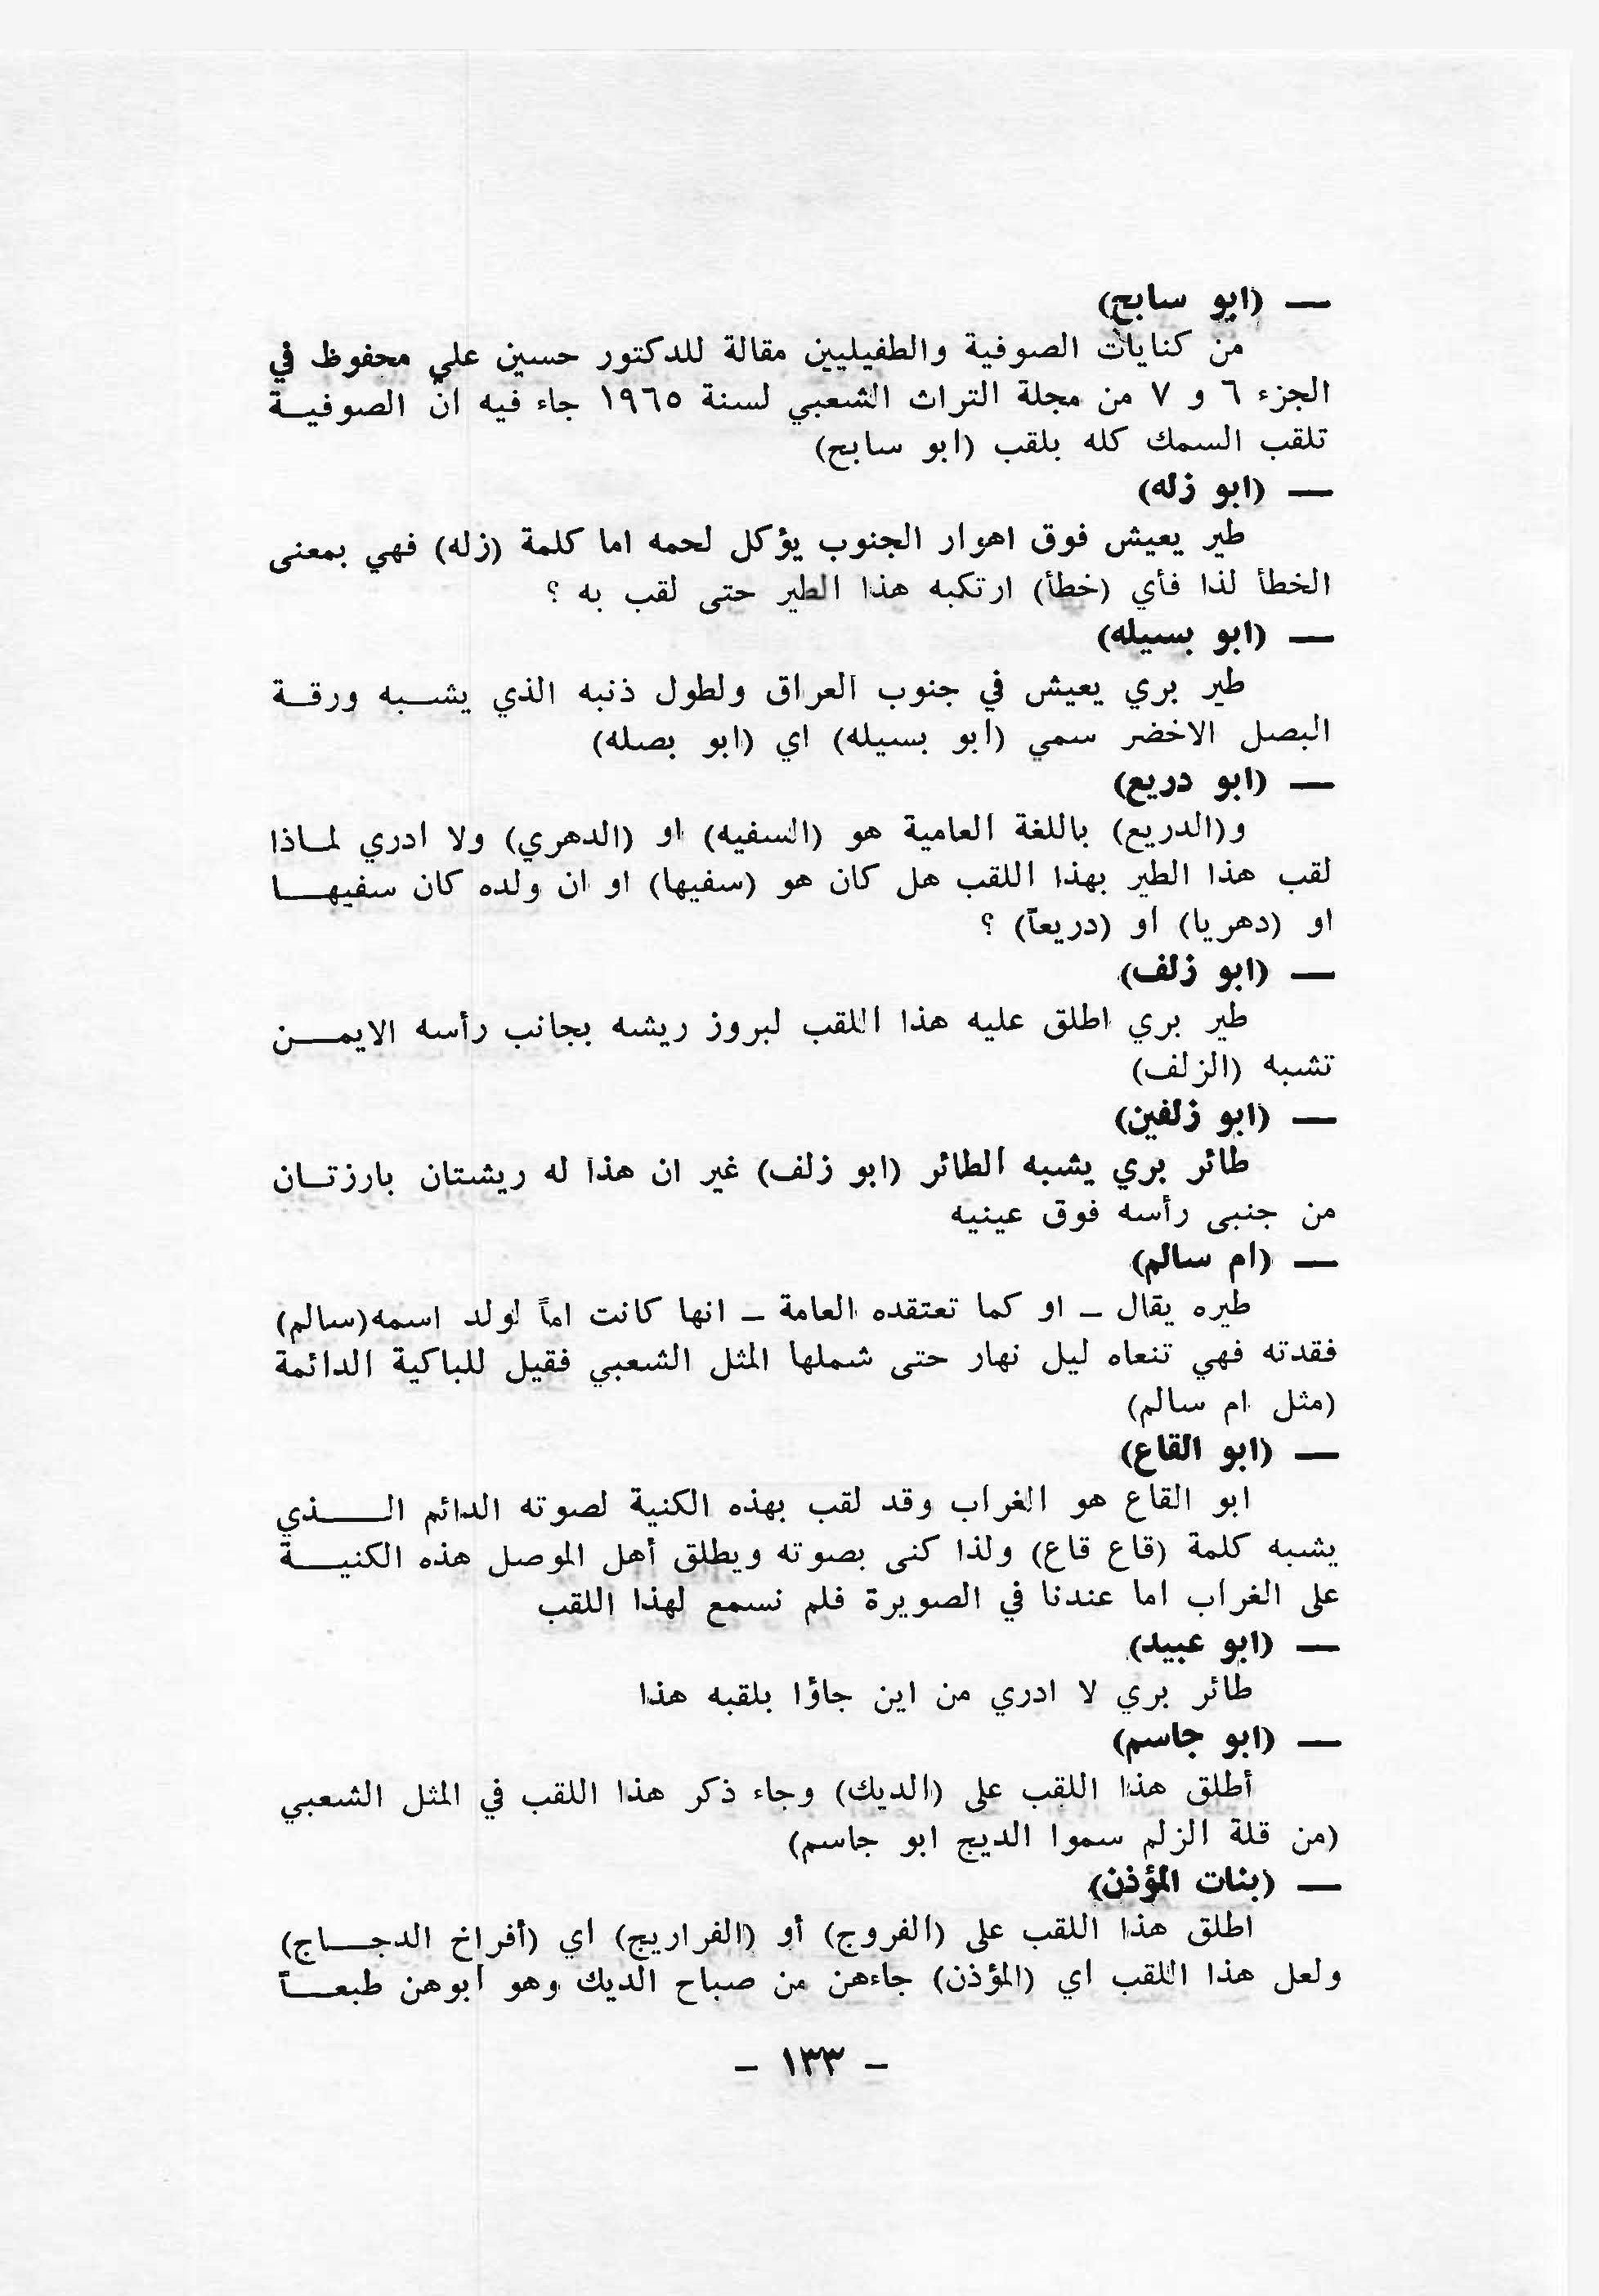 — (ابو سابح)
من كنايات الصوفية والطفيليين مقالة للدكتور حسين علي محفوظ في
الجزء ٦ و ٧ من مجلة التراث الشعبي لسنة ١٩٦٥ جاء فيه ان الصوفيـة
تلقب السمك كله بلقب (ابو سابح)
— (ابو زله)
طير يعيش فوق اهوار الجنوب يؤكل لحمه اما كلمة (زله) فهي بمعنى
الخطأ لذا فأي (خطأ) ارتكبه هذا الطير حتى لقب به ؟
— (ابو بسيله)
طير بري يعيش في جنوب العراق ولطول ذنبه الذي يشـبه ورقـة
البصل الاخضر سمي (ابو بسيله) اي (ابو بصله)
— (ابو دريع)
و(الدريع) باللغة العامية هو (السفيه) او (الدهري) ولا ادري لمـاذا
لقب هذا الطير بهذا اللقب هل كان هو (سفيها) او ان ولده كان سفيهـا
او (دهريا) او (دريعاً) ؟
— (ابو زلف)
طير بري اطلق عليه هذا اللقب لبروز ريشه بجانب رأسه الايمـن
تشبه (الزلف)
— (ابو زلفين)
طائر بري يشبه الطائر (ابو زلف) غير ان هذا له ريشتان بارزتـان
من جنبى رأسه فوق عينيه
— (ام سالم)
طيره يقال ـ او كما تعتقده العامة ـ انها كانت اماً لولد اسمه(سالم)
فقدته فهي تنعاه ليل نهار حتى شملها المثل الشعبي فقيل للباكية الدائمة
(مثل ام سالم)
— (ابو القاع)
ابو القاع هو الغراب وقد لقب بهذه الكنية لصوته الدائم الـذي
يشبه كلمة (قاع قاع) ولذا كنى بصوته ويطلق أهل الموصل هذه الكنيـة
على الغراب اما عندنا في الصويرة فلم نسمع لهذا اللقب
— (ابو عبيد)
طائر بري لا ادري من اين جاؤا بلقبه هذا
— (ابو جاسم)
أطلق هذا اللقب على (الديك) وجاء ذكر هذا اللقب في المثل الشعبي
(من قلة الزلم سموا الديج ابو جاسم)
— (بنات المؤذن)
اطلق هذا اللقب على (الفروج) أو (الفراريج) اي (أفراخ الدجـاج)
ولعل هذا اللقب اي (المؤذن) جاءهن من صباح الديك وهو ابوهن طبعـاً
- ١٣٣ -